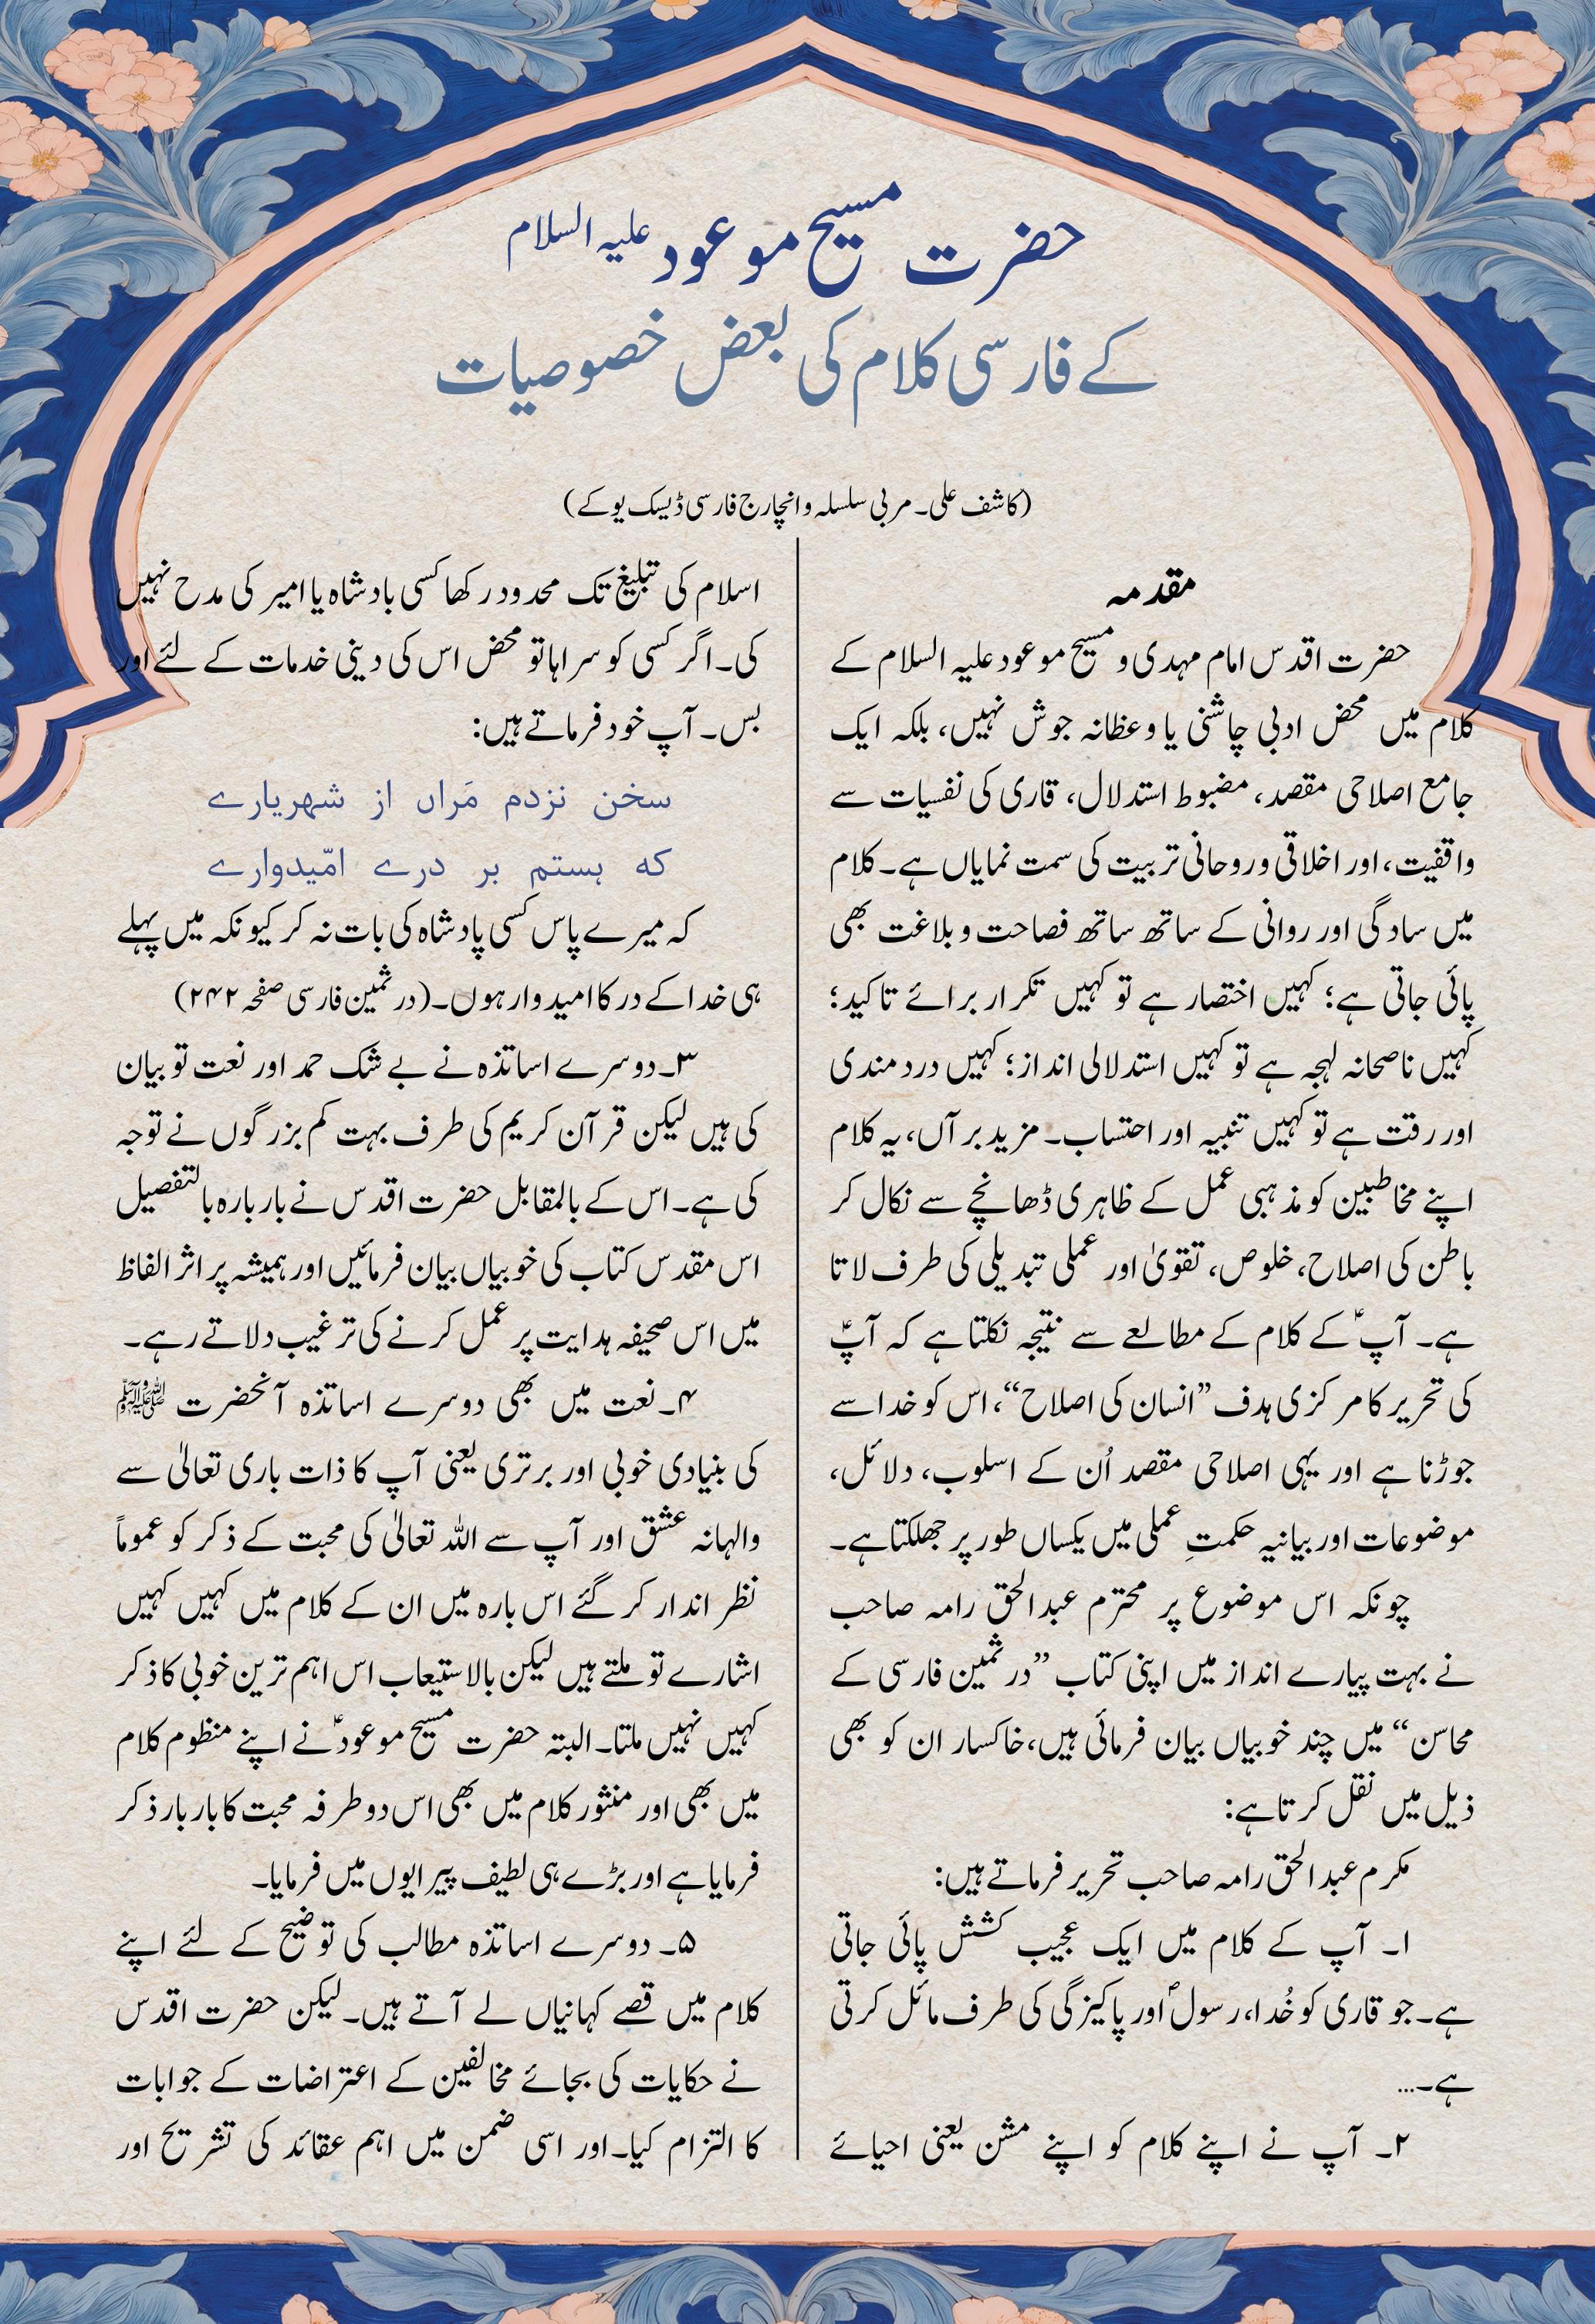 حضرت مسیح موعود علیہ السلام
کے فارسی کلام کی بعض خصوصیات
(کاشف علی۔ مربی سلسلہ و انچارج فارسی ڈیسک یوکے)
مقدمہ
حضرت اقدس امام مہدی و مسیح موعود علیہ السلام کے
کلام میں محض ادبی چاشنی یا وعظانہ جوش نہیں، بلکہ ایک
جامع اصلاحی مقصد، مضبوط استدلال، قاری کی نفسیات سے
واقفیت، اور اخلاقی و روحانی تربیت کی سمت نمایاں ہے۔ کلام
میں سادگی اور روانی کے ساتھ ساتھ فصاحت و بلاغت بھی
پائی جاتی ہے؛ کہیں اختصار ہے تو کہیں تکرار برائے تاکید؛
کہیں ناصحانہ لہجہ ہے تو کہیں استدلالی انداز؛ کہیں درد مندی
اور رقت ہے تو کہیں تنبیہ اور احتساب۔ مزید بر آں، یہ کلام
اپنے مخاطبین کو مذہبی عمل کے ظاہری ڈھانچے سے نکال کر
باطن کی اصلاح، خلوص، تقویٰ اور عملی تبدیلی کی طرف لاتا
ہے۔ آپؑ کے کلام کے مطالعے سے نتیجہ نکلتا ہے کہ آپؑ
کی تحریر کا مرکزی ہدف ”انسان کی اصلاح“، اس کو خدا سے
جوڑنا ہے اور یہی اصلاحی مقصد اُن کے اسلوب، دلائل،
موضوعات اور بیانیہ حکمتِ عملی میں یکساں طور پر جھلکتا ہے۔
چونکہ اس موضوع پر محترم عبد الحق رامہ صاحب
نے بہت پیارے انداز میں اپنی کتاب ”در ثمین فارسی کے
محاسن“ میں چند خوبیاں بیان فرمائی ہیں، خاکسار ان کو بھی
ذیل میں نقل کرتا ہے:
مکرم عبد الحق رامہ صاحب تحریر فرماتے ہیں:
۱۔ آپ کے کلام میں ایک عجیب کشش پائی جاتی
ہے۔ جو قاری کو خُدا، رسولؐ اور پاکیزگی کی طرف مائل کرتی
ہے۔...
۲۔ آپ نے اپنے کلام کو اپنے مشن یعنی احیائے
اسلام کی تبلیغ تک محدود رکھا کسی بادشاہ یا امیر کی مدح نہیں
کی۔ اگر کسی کو سراہا تو محض اس کی دینی خدمات کے لئے اور
بس۔ آپ خود فرماتے ہیں:
سخن نزدم مَراں از شہریارے
کہ ہستم بر درے امّیدوارے
کہ میرے پاس کسی پادشاہ کی بات نہ کر کیونکہ میں پہلے
ہی خدا کے در کا امیدوار ہوں۔ (در ثمین فارسی صفحہ ۲۴۲)
۳۔ دوسرے اساتذہ نے بے شک حمد اور نعت تو بیان
کی ہیں لیکن قرآن کریم کی طرف بہت کم بزرگوں نے توجہ
کی ہے۔ اس کے بالمقابل حضرت اقدس نے بار بارہ بالتفصیل
اس مقدس کتاب کی خوبیاں بیان فرمائیں اور ہمیشہ پر اثر الفاظ
میں اس صحیفہ ہدایت پر عمل کرنے کی ترغیب دلاتے رہے۔
۴۔ نعت میں بھی دوسرے اساتذہ آنحضرت ﷺ
کی بنیادی خوبی اور برتری یعنی آپ کا ذات باری تعالیٰ سے
والہانہ عشق اور آپ سے اللہ تعالیٰ کی محبت کے ذکر کو عموماً
نظر اندار کر گئے اس بارہ میں ان کے کلام میں کہیں کہیں
اشارے تو ملتے ہیں لیکن بالاستیعاب اس اہم ترین خوبی کا ذکر
کہیں نہیں ملتا۔ البتہ حضرت مسیح موعودؑ نے اپنے منظوم کلام
میں بھی اور منثور کلام میں بھی اس دو طرفہ محبت کا بار بار ذکر
فرمایا ہے اور بڑے ہی لطیف پیرایوں میں فرمایا۔
۵۔ دوسرے اساتذہ مطالب کی توضیح کے لئے اپنے
کلام میں قصے کہانیاں لے آتے ہیں۔ لیکن حضرت اقدس
نے حکایات کی بجائے مخالفین کے اعتراضات کے جوابات
کا التزام کیا۔ اور اسی ضمن میں اہم عقائد کی تشریح اور